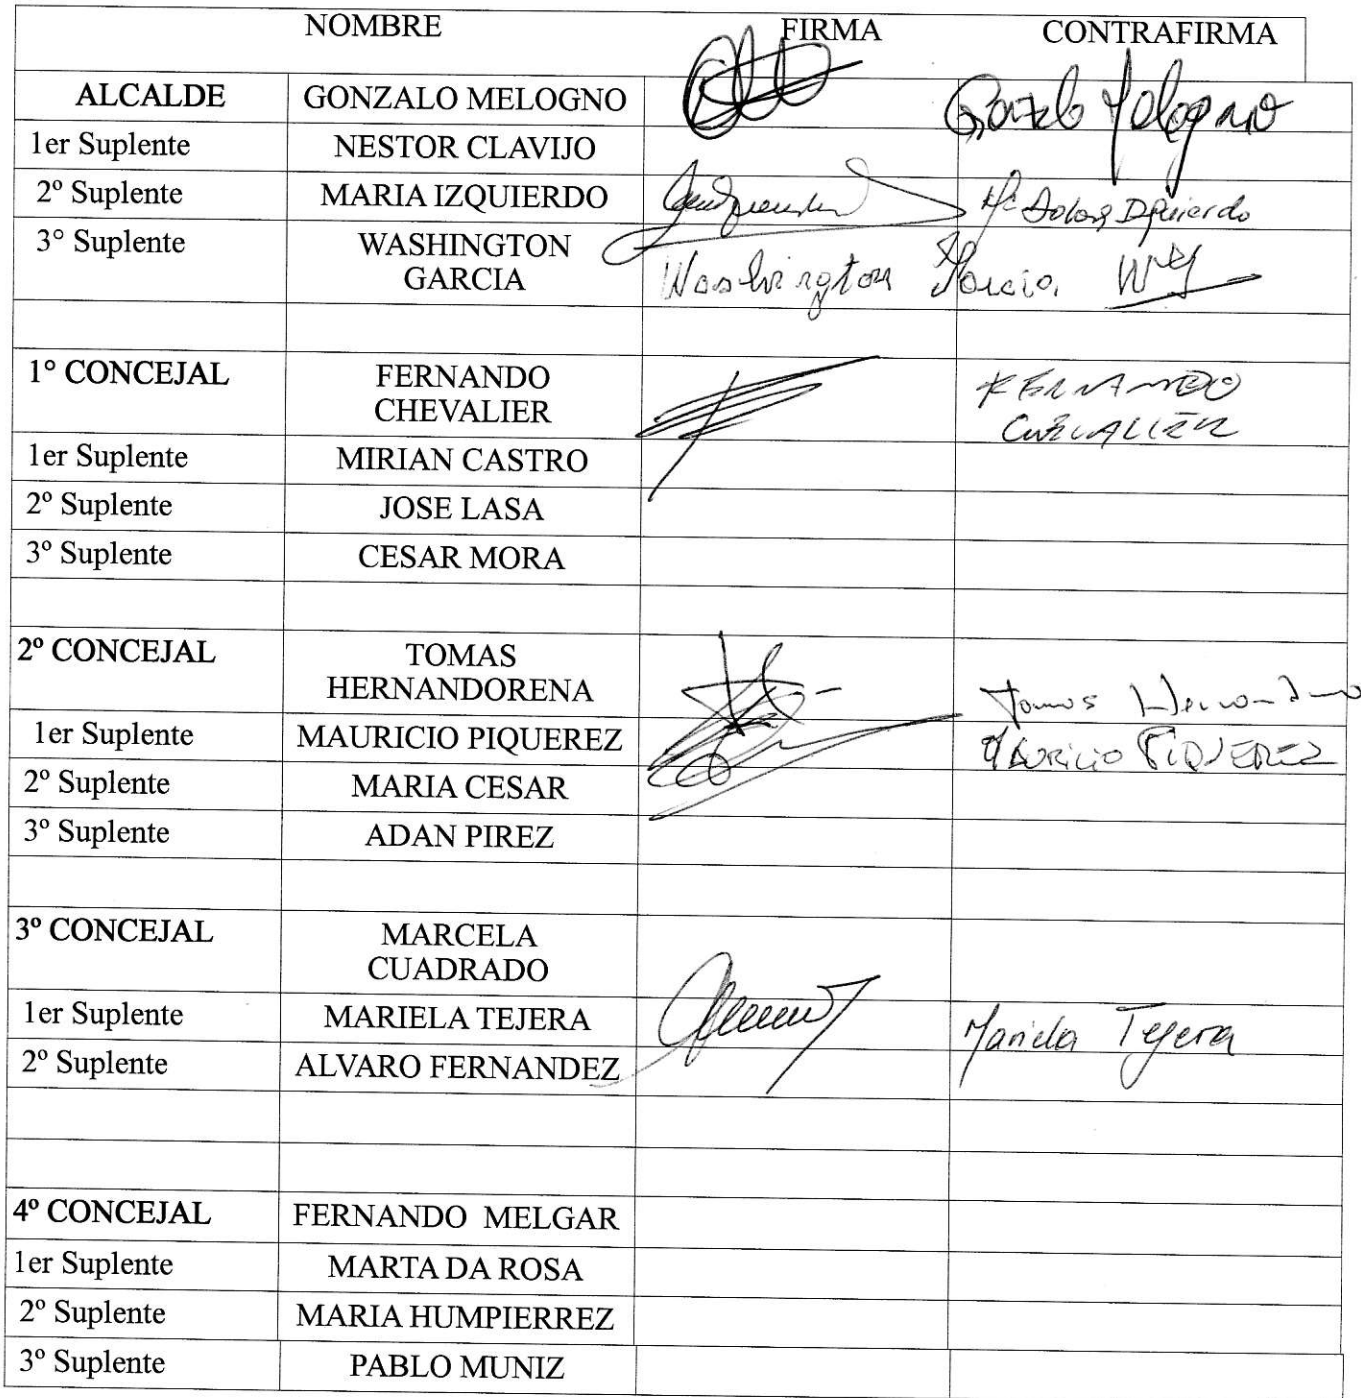 NOMBRE FIRMA CONTRAFIRMA
ALCALDE GONZALO MELOGNO Gonzalo Melogno
1er Suplente NESTOR CLAVIJO
2º Suplente MARIA IZQUIERDO Mª Dolores Izquierdo
3° Suplente WASHINGTON
GARCIA Washington Garcia WG
1° CONCEJAL FERNANDO FERNANDO
CHEVALIER CHEVALIER
1er Suplente MIRIAN CASTRO
2º Suplente JOSE LASA
3º Suplente CESAR MORA
2º CONCEJAL TOMAS
HERNANDORENA Tomas
1er Suplente MAURICIO PIQUEREZ MAURICIO PIQUEREZ
2º Suplente MARIA CESAR
3º Suplente ADAN PIREZ
3º CONCEJAL MARCELA
CUADRADO
1er Suplente MARIELA TEJERA Mariela Tejera
2º Suplente ALVARO FERNANDEZ
4º CONCEJAL FERNANDO MELGAR
1er Suplente MARTA DA ROSA
2º Suplente MARIA HUMPIERREZ
3º Suplente PABLO MUNIZ